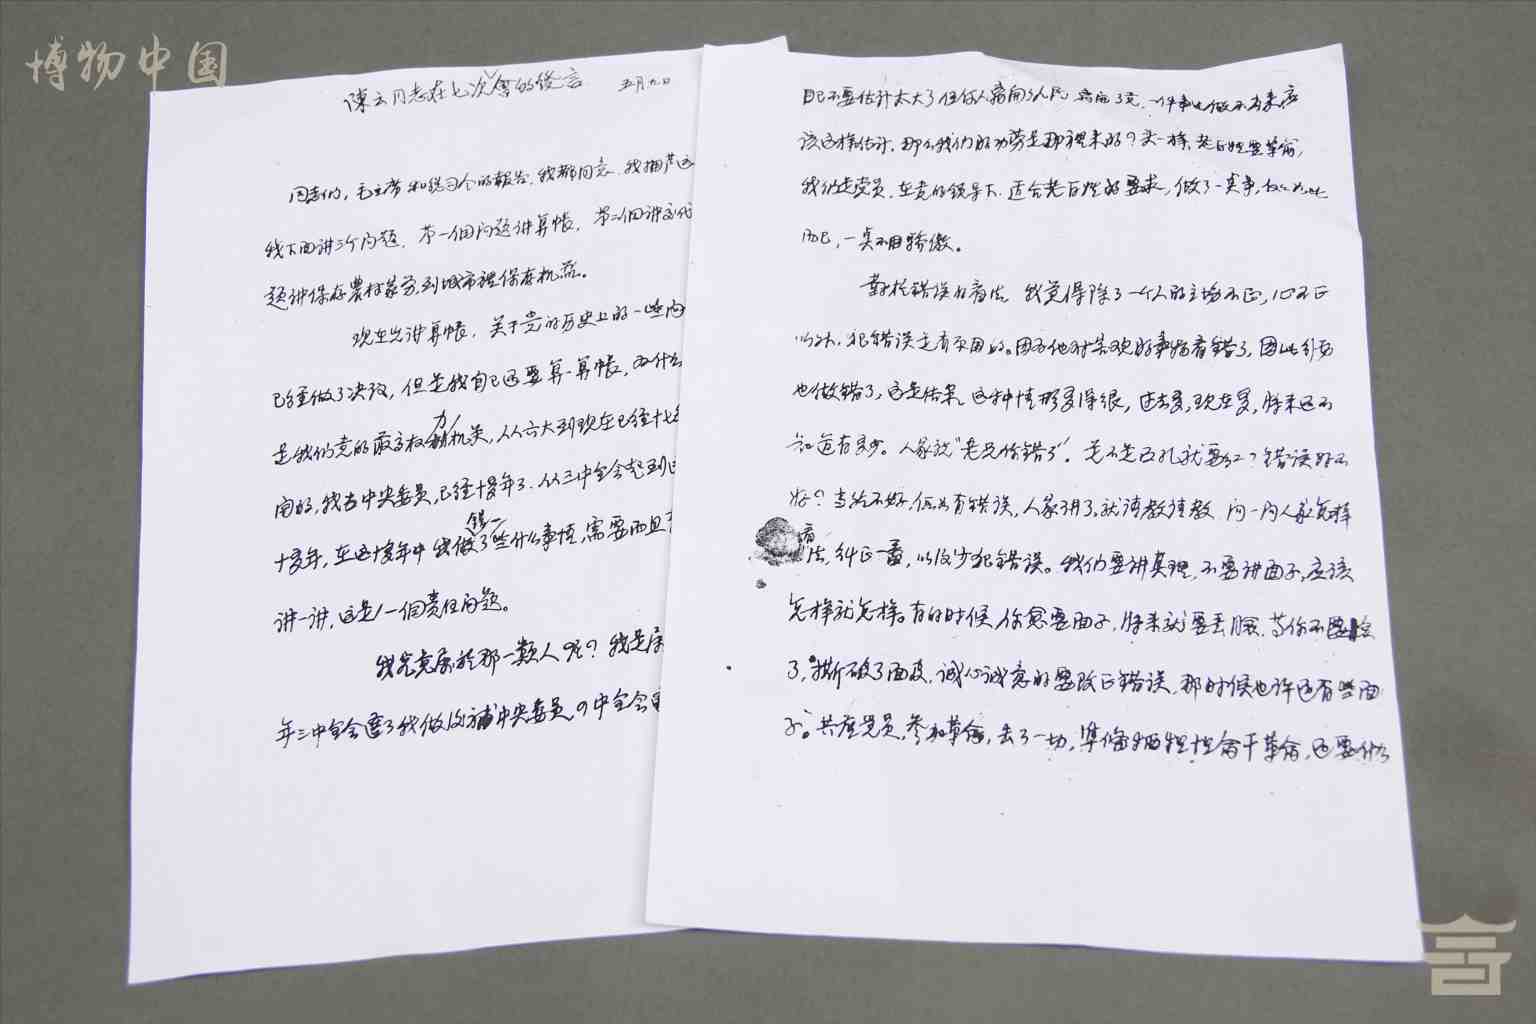 博物中国
陳云同志在七次会的發言 五月九日
同志们，毛主席和总司令的報告，我都同意，我拥护这
我下面讲三个问题，第一個问题讲算帳，第二個讲
题讲保存農村家务，到城市裡保存机器。
现在先讲算帳，关于党的历史上的一些问
已经做了决议，但是我自己还要算一算帳，为什么
是我们党的最高权力机关，从六大到现在已经十七年
開的，我当中央委員，已经十多年了，从三中全会起到
十多年，在这十多年中我做了一些什么事情，需要而且
讲一讲，这是一個责任问题。
我究竟属於那一類人呢？我是属
年三中全会選了我做候補中央委員，四中全会
自己不要估计太大了，任何人离開了人民，离開了党，一件事也做不出来，应
该这样估计，那么我们的功劳是那裡来的？头一样，老百姓要革命，
我们是党员，在党的领导下，适合老百姓的要求，做了一点事，仅仅如此
而已，一点不用骄傲。
對於错误的看法，我觉得除了一个人的立场不正，心不正
以外，犯错误是有原因的。因为他对客观的事物看错了，因此行动
也做错了，这是结果。这种情形多得很，过去多，现在多，将来还不
知道有多少。人家说“老兄你错了”，是不是面孔就要红？错误好不
好？当然不好，但如有错误，人家讲了，就请教请教，问一问人家怎样
看法，纠正一番，以后少犯错误。我们要讲真理，不要讲面子，应该
怎样就怎样。有的时候，你愈要面子，将来就要丢脸，当你不要脸
了，撕破了面皮，诚心诚意的要改正错误，那时候也许还有些面
子。共产党员，参加革命，丢了一切，準備牺牲性命干革命，还要什么